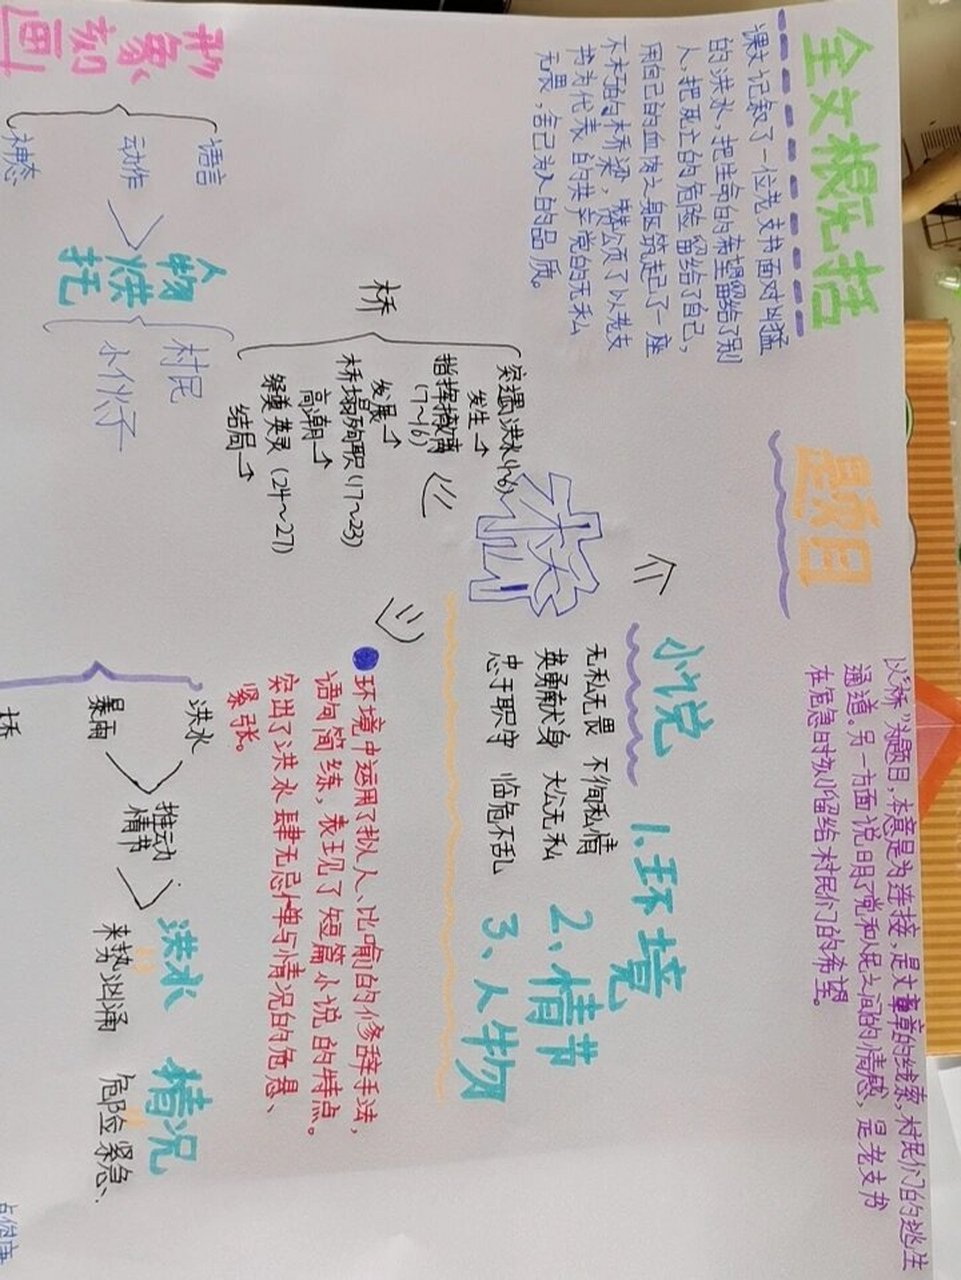 全文概括
课文记叙了一位老支书面对凶猛
的洪水,把生命的希望留给了别
人,把死亡的危险留给了自己,
用自己的血肉之躯筑起了一座
不朽的桥梁,赞颂了以老支
书为代表的共产党的无私
无畏,舍己为人的品质。
题目
以"桥"为题目,本意是为连接,是文章的线索,村民们的逃生
通道。另一方面说明了党和人民之间的情感,是老支书
在危急时刻留给村民们的希望。
桥
小说
1.环境
2、情节
3、人物
无私无畏 不徇私情
英勇献身 大公无私
忠于职守 临危不乱
桥
突遇洪水
发生→
指挥撤离
(7~16)
发展→
桥塌殉职(17~23)
高潮→
祭奠英灵(24~27)
结局→
形象刻画
语言
动作
神态
人物烘托
村民
小伙子
环境中运用了拟人、比喻的修辞手法,
语句简练,表现了短篇小说的特点。
突出了洪水肆无忌惮与情况的危急、
紧张。
洪水
暴雨
桥
推动
情节
洪水
来势汹涌
情况
危险紧急